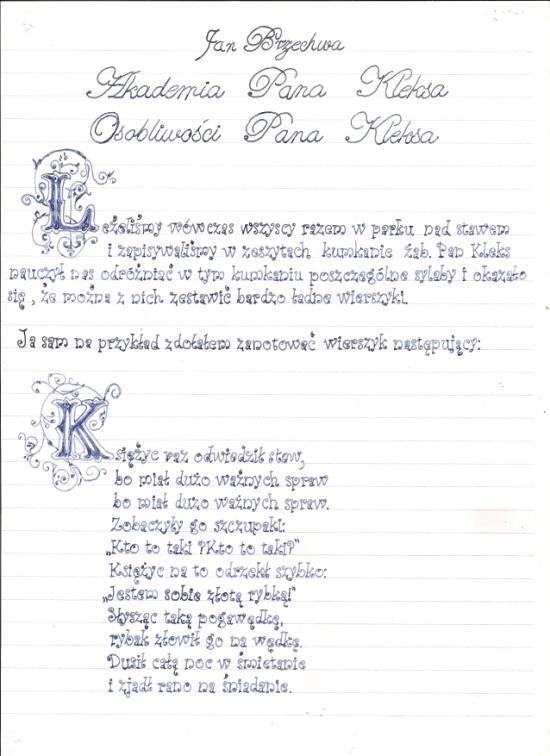 Jan Brzechwa
Akademia Pana Kleksa
Osobliwości Pana Kleksa
Leżeliśmy wówczas wszyscy razem w parku nad stawem
i zapisywaliśmy w zeszytach kumkanie żab. Pan Kleks
nauczył nas odróżniać w tym kumkaniu poszczególne sylaby i okazało
się, że można z nich zestawić bardzo ładne wierszyki.
Ja sam na przykład zdołałem zanotować wierszyk następujący:
Księżyc raz odwiedził staw,
bo miał dużo ważnych spraw
bo miał dużo ważnych spraw.
Zobaczyły go szczupaki:
„Kto to taki ?Kto to taki?"
Księżyc na to odrzekł szybko:
„Jestem sobie złotą rybką!"
Słysząc taką pogawędkę,
rybak złowił go na wędkę.
Dusił całą noc w śmietanie
i zjadł rano na śniadanie.